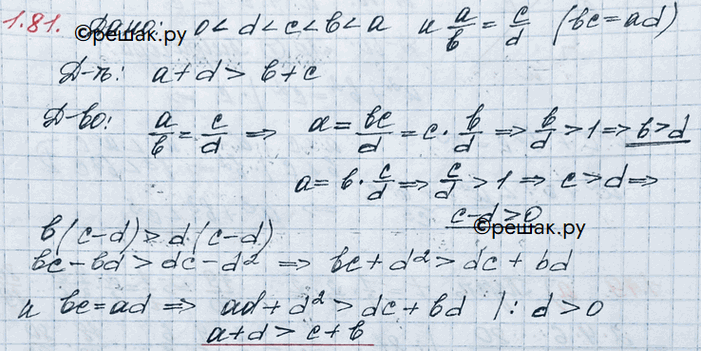 1.81. Дано: 0 < d < c < b < a и a/b = c/d (bc = ad)
©решак.ру
Д-ть: a + d > b + c
Д-во: a/b = c/d ⇒ a = bc/d = c · b/d ⇒ b/d > 1 ⇒ b > d
a = b · c/d ⇒ c/d > 1 ⇒ c > d ⇒
c - d > 0
©решак.ру
b(c-d) > d(c-d)
bc - bd > dc - d² ⇒ bc + d² > dc + bd
и bc = ad ⇒ ad + d² > dc + bd | : d > 0
a + d > c + b